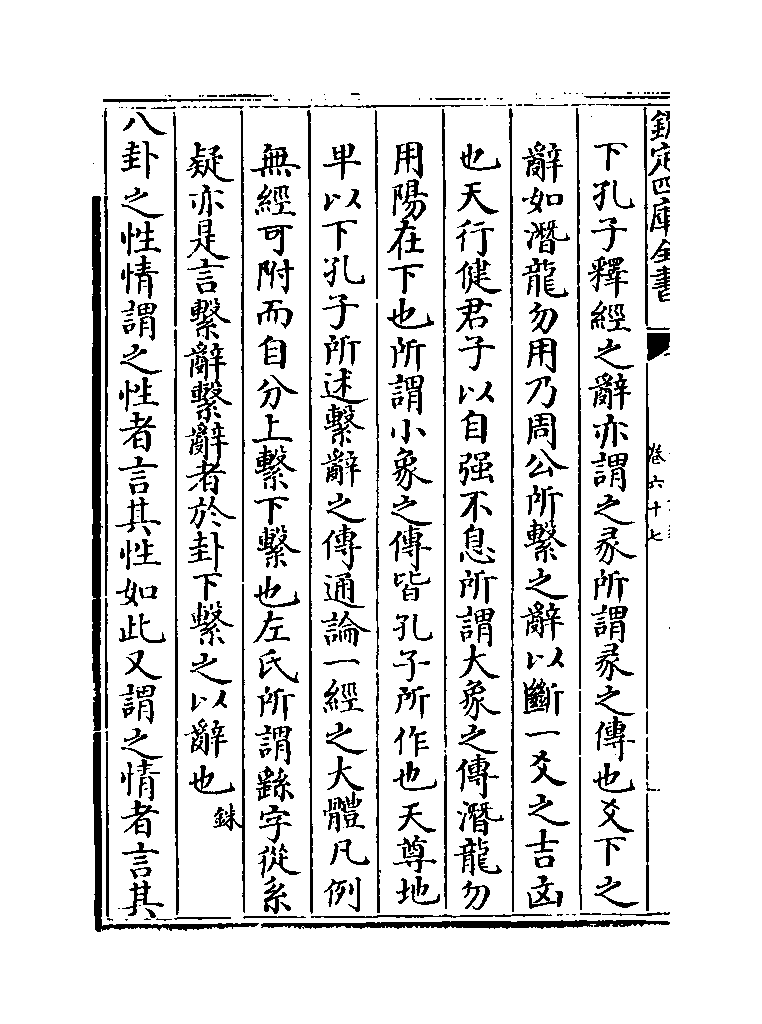 欽定四庫全書
卷六十七
下孔子釋經之辭亦謂之彖所謂彖之傳也爻下之
辭如潛龍勿用乃周公所繫之辭以斷一爻之吉凶
也天行健君子以自强不息所謂大象之傳潛龍勿
用陽在下也所謂小象之傳皆孔子所作也天尊地
卑以下孔子所述繫辭之傳通論一經之大體凡例
無經可附而自分上繫下繫也左氏所謂繇字從系
疑亦是言繫辭繫辭者於卦下繫之以辭也 銖
八卦之性情謂之性者言其性如此又謂之情者言其